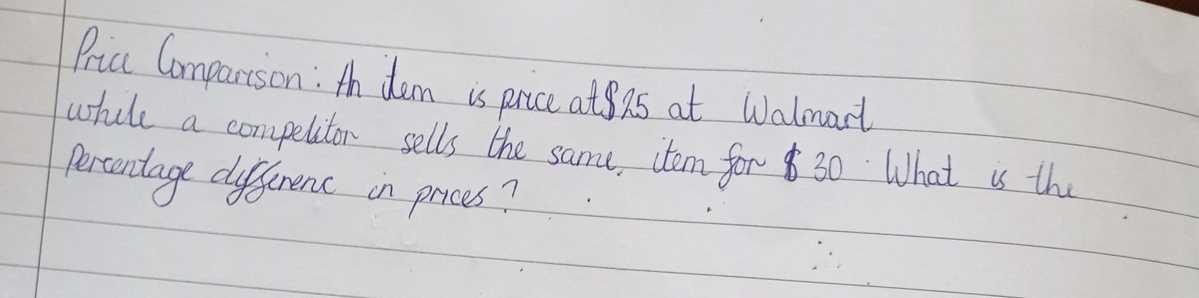 Price Comparison: An item is price at $25 at Walmart
while a competitor sells the same item for $30. What is the
Percentage differenc in prices?